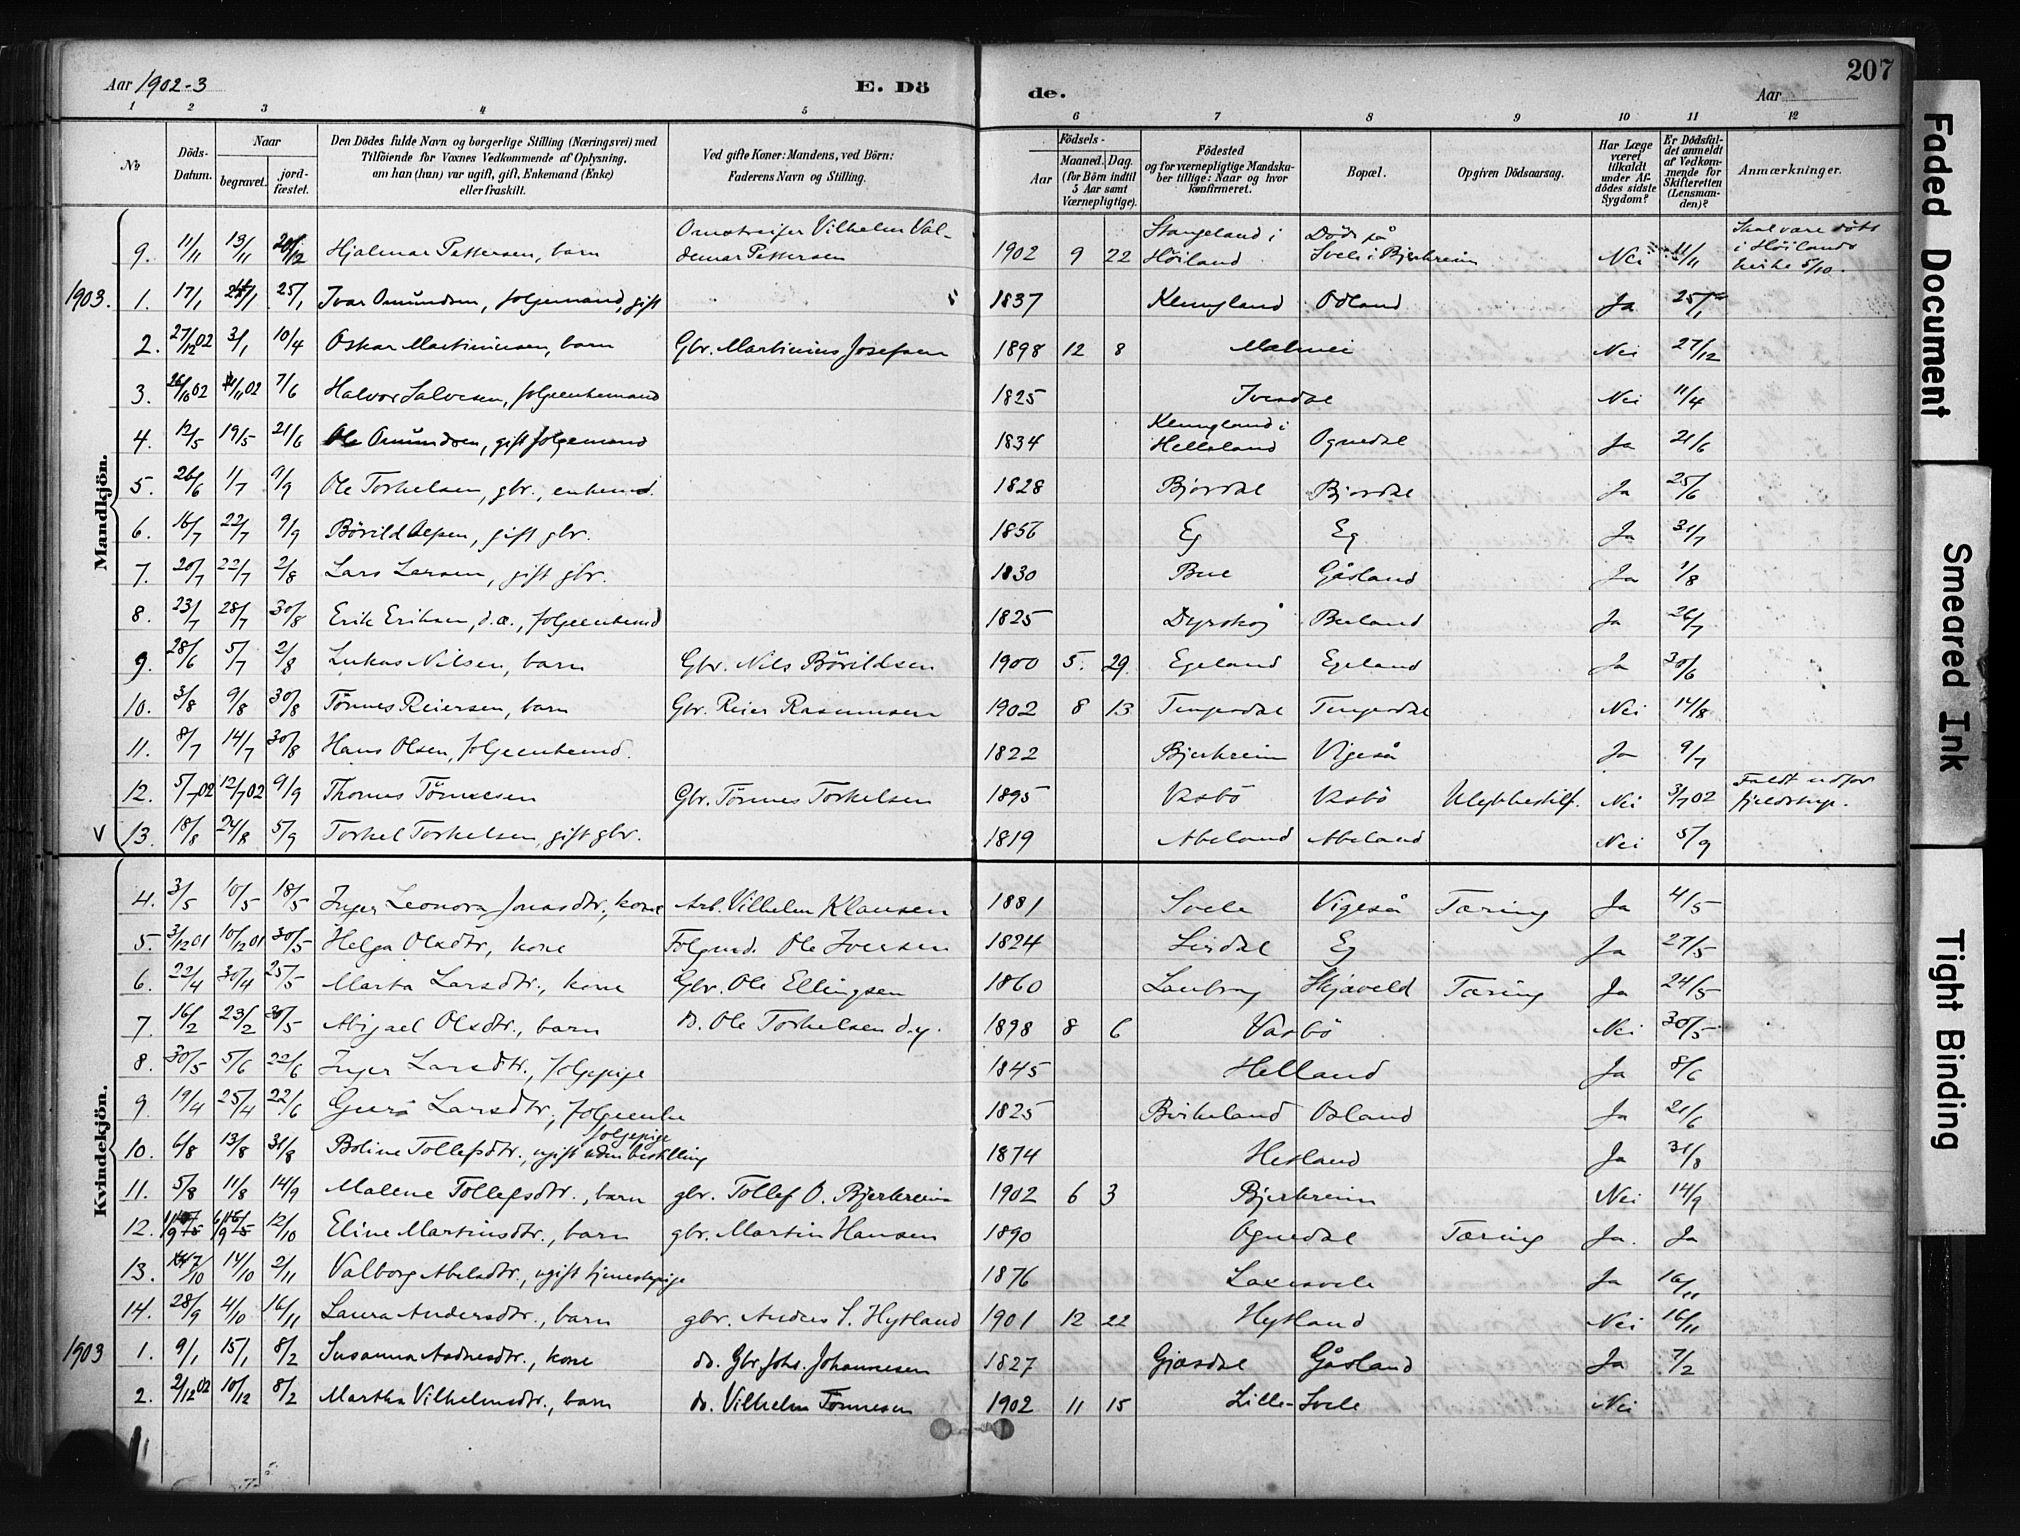 Aar 1902-3
E. Dö
de.
Aar
207
1 2 3 4 5 6 7 8 9 10 11 12
No
Döds-Datum.
Naar
begravet.
jord-fæstet.
Den Dödes fulde Navn og borgerlige Stilling (Næringsvei) med
Tilföiende for Voxnes Vedkommende af Oplysning,
om han (hun) var ugift, gift, Enkemand (Enke)
eller fraskilt.
Ved gifte Koner: Mandens, ved Börn:
Faderens Navn og Stilling.
Födsels-
Aar
Maaned. Dag.
(for Börn indtil
5 Aar samt
Værnepligtige).
Födested
og for værnepligtige Mandska-
ber tillige: Naar og hvor
konfirmeret.
Bopæl.
Opgiven Dödsaarsag.
Har Læge
været
tilkaldt
under Af-
dödes sidste
Sygdom?
Er Dödsfal-
det anmeldt
af Vedkom-
mende for
Skifteretten
(Lensman-
den)?
Anmærkninger.
Mandkjön.
9. 11/11 13/11 Hjalmar Pettersen, barn Vilhelm Val-demar Pettersen 1902 9 22 Stangeland i Höiland Död på Svele i Bjerkreim Nei 11/11 Skal være döbt i Höilands kirke 5/10.
1903. 1. 17/1 25/1 Ivar Omundsen, folgemand, gift 1837 Odland Ja 25/1
2. 27/12 02 3/1 10/4 Oskar Martiniusen, barn Gbr. Martinius Josefsen 1898 12 8 Malmei Nei 27/12
3. 26/10 02 7/6 Halvor Salvesen, folgeenkemand 1825 Ivesdal Nei 11/4
4. 12/5 19/5 21/6 Ole Omundsen, gift folgemand 1834 Helleland Ognedal Ja 21/6
5. 26/6 1/7 9/9 Ole Torkelsen, gbr., enkemd. 1828 Bjordal Bjordal Ja 25/6
6. 16/7 22/7 9/9 Börild gift gbr. 1856 Eg Eg Ja 31/7
7. 20/7 22/7 2/8 Lars Larsen, gift gbr. 1830 Bue Gåsland Ja 1/8
8. 23/7 28/7 30/8 Erik Eriksen, d.æ., folgeenkemd 1825 Dyrskog Ja 26/7
9. 28/6 5/7 2/8 Lukas Nilsen, barn Gbr. Nils Börildsen 1900 5. 29. Egeland Egeland Ja 30/6
10. 3/8 9/8 30/8 Tönnes Reiersen, barn Gbr. Reier Rasmussen 1902 8 13 Tengesdal Tengesdal Nei 14/8
11. 8/7 14/7 30/8 Hans Olsen, folgeenkemd. 1822 Bjerkreim Vigeså Ja 9/7
12. 5/7 02 12/7 02 9/9 Thomas Tönnesen Gbr. Tönnes Torkelsen 1895 Vasbö Vasbö Ulykkestilf. Nei 3/7 02 Faldt udfor fjeldstup.
V 13. 18/8 24/8 5/9 Torkel Torkelsen, gift gbr. 1819 Abeland Abeland Nei 5/9
Kvindekjön.
4. 3/5 10/5 18/5 Inger Leonora Jonasdtr., kone Arb. Vilhelm Klausen 1881 Svele Vigeså Tæring Ja 4/5
5. 3/12 01 10/12 01 30/5 Helga Olsdtr., kone Folgmd. Ole Iversen 1824 Eg Ja 27/5
6. 22/4 30/4 25/5 Marta Larsdtr., kone Gbr. Ole Ellingsen 1860 Skjæveld Tæring Ja 24/5
7. 16/2 23/2 30/5 Abigael Olsdtr., barn do. Ole Torkelsen d.y. 1898 8 6 Vasbö Nei 30/5
8. 30/5 5/6 22/6 Inger Larsdtr., folgepige 1845 Helland Ja 8/6
9. 19/4 25/4 22/6 Guro Larsdtr., folgeenke 1825 Birkeland Osland Ja 21/6
10. 6/8 13/8 31/8 Boline Tollefsdtr., ugift uden bestilling folgepige 1874 Hetland Ja 31/8
11. 5/8 11/8 14/9 Malene Tollefsdtr., barn gbr. Tollef O. Bjerkreim 1902 6 3 Bjerkreim Nei 14/9
12. 12/10 Eline Martinsdtr., barn gbr. Martin Hansen 1890 Ognedal Tæring Ja. Ja
13. 14/10 2/11 Valborg Abelsdtr., ugift tjenestepige 1876 Laxesvele Ja 16/11
14. 28/9 4/10 16/11 Laura Andersdtr., barn gbr. Anders S. Hytland 1901 12 22 Hytland Nei 16/11
1903 1. 9/1 15/1 8/2 Susanna Aadnesdtr., kone do. Gbr. Johs. Johannesen 1827 Gjæsdal Gåsland Ja 7/2
2. 2/12 02 10/12 8/2 Martha Vilhelmsdtr., barn do. Vilhelm Tönnesen 1902 11 15 Lille-Svele Nei
Faded Document
Smeared Ink
Tight Binding